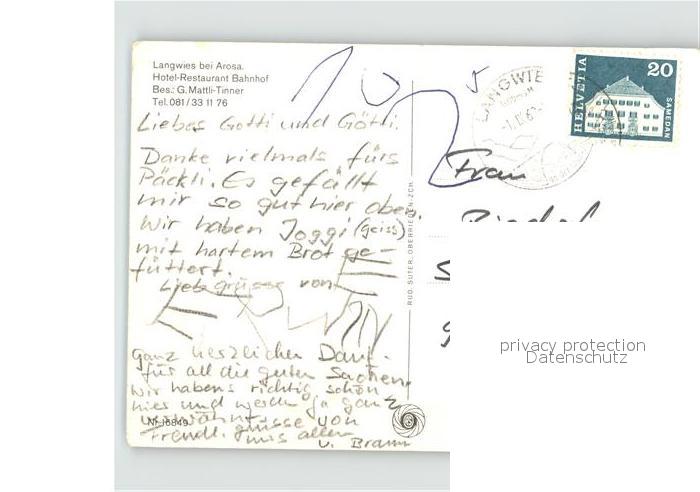 Langwies bei Arosa.
Hotel-Restaurant Bahnhof
Bes.: G. Mattli-Tinner
Tel. 081/33 11 76
Liebes Gotti und Götti.
Danke vielmals fürs
Päckli. Es gefällt
mir so gut hier oben.
Wir haben Joggi (geiss)
mit hartem Brot ge-
füttert.
Liebe grüsse von
ganz herzlichen Dank
für all die guten Sachen,
wir habens richtig schön
hier und werden ja ganz
verwöhnt.
Freundl. grüsse von
uns allen
u. Braun
Nr. 16849
RUD. SUTER, OBERRIEDEN-ZCH.
LANGWIES
HELVETIA
20
SAMEDAN
Frau
privacy protection
Datenschutz